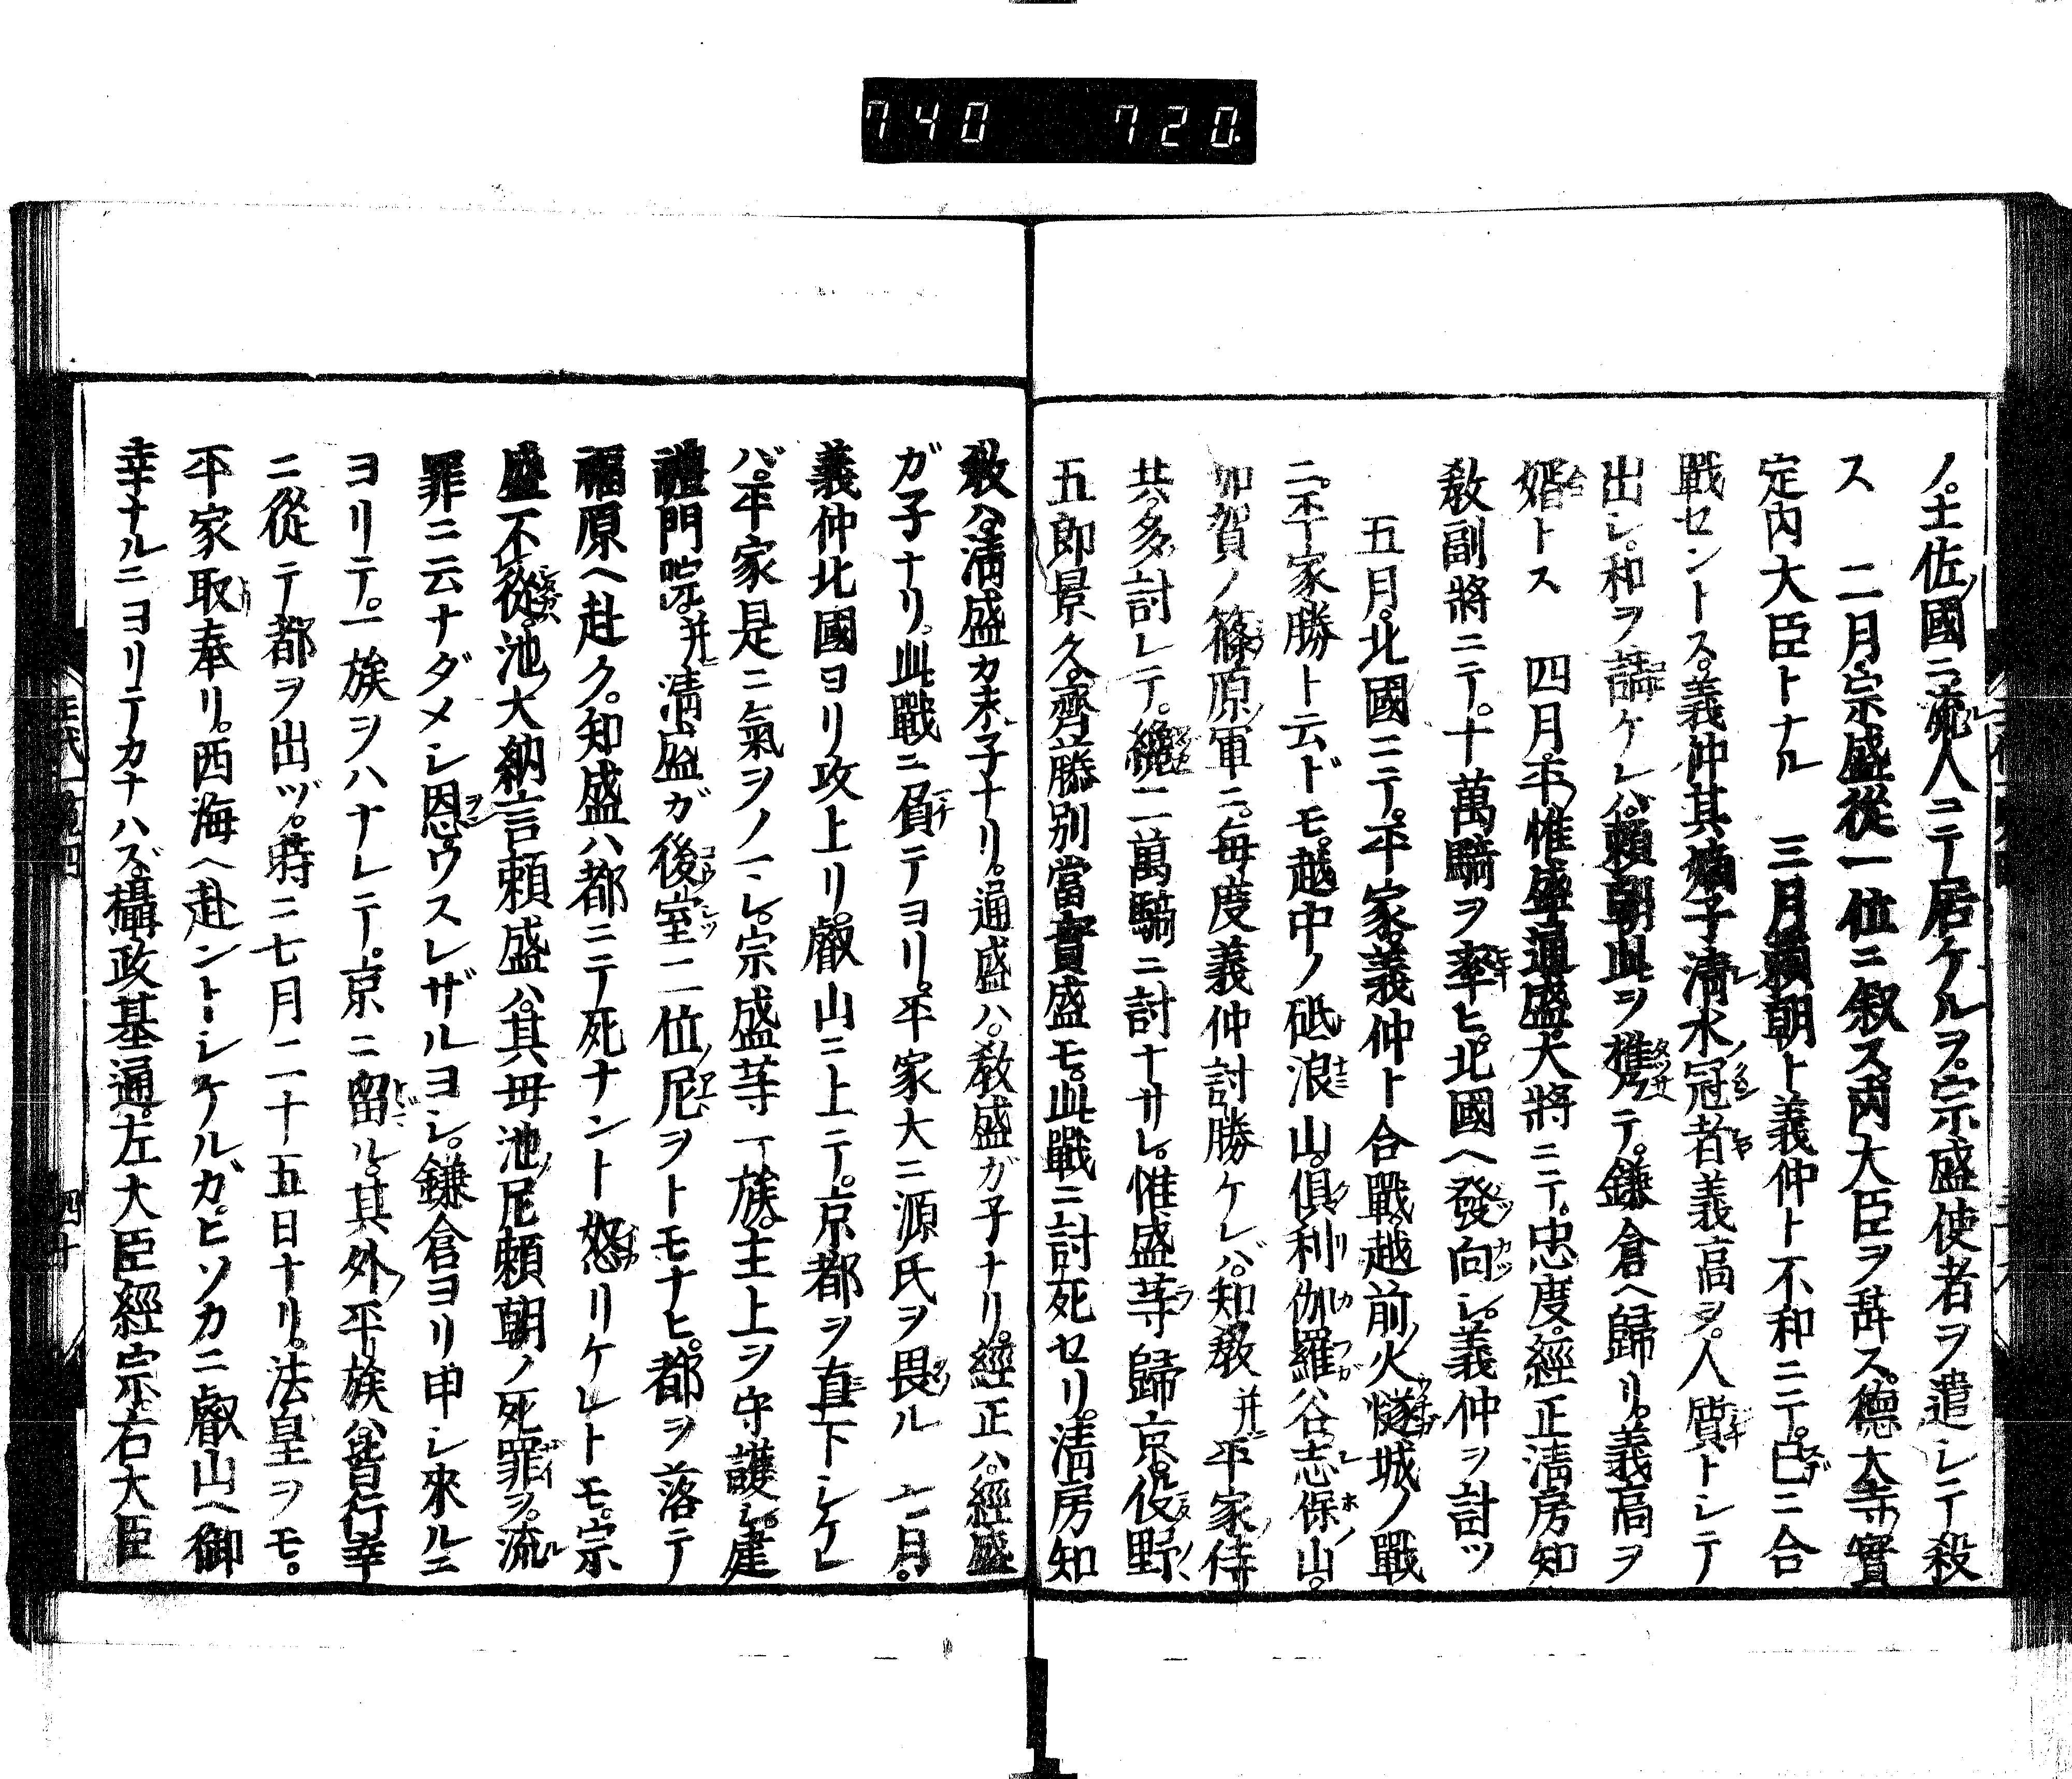 740 720.
ノ。土佐國ニ流人ニテ居ケルヲ。宗盛使者ヲ遣シテ殺
ス 二月。宗盛從一位ニ叙ス。内大臣ヲ辞ス。德大寺實
定内大臣トナル 三月。賴朝ト義仲ト不和ニテ。已ニ合
戰セントス。義仲其嫡子清水冠者義高ヲ。人質トシテ
出シ。和ヲ請ケレバ。賴朝此ヲ携テ。鎌倉ヘ歸リ。義高ヲ
婿トス 四月。平惟盛通盛。大將ニテ。忠度。經正清房知
敎副將ニテ。十萬騎ヲ率ヒ。北國ヘ發向シ。義仲ヲ討ツ
五月。北國ニテ。平家義仲ト合戰。越前火燧城ノ戰
ニ。平家勝ト云ドモ。越中ノ砥浪山。倶利伽羅谷志保山。
加賀ノ篠原軍ニ。每度義仲討勝ケレバ。知敎并平家侍
共。多討レテ。纔二萬騎ニ討ナサレ。惟盛等歸京。俣野
五郎景久。齊藤別當實盛モ。此戰ニ討死セリ。清房知
敎ハ。清盛カ末子ナリ。通盛ハ。敎盛ガ子ナリ。經正ハ。經盛
ガ子ナリ。此戰ニ負テヨリ。平家大ニ源氏ヲ畏ル 七月。
義仲北國ヨリ攻上リ。叡山ニ上テ。京都ヲ直下シケレ
バ。平家是ニ氣ヲノマレ。宗盛等一族。主上ヲ守護シ。建
禮門院。并清盛ガ後室二位尼ヲトモナヒ。都ヲ落テ
福原ヘ赴ク。知盛ハ都ニテ死ナント怒リケレトモ。宗
盛不從。池大納言賴盛ハ。其母池尼賴朝ノ死罪ヲ。流
罪ニ云ナダメシ恩。ウスレザルヨシ。鎌倉ヨリ申シ來ルニ
ヨリテ。一族ヲハナレテ。京ニ留ル。其外平族ハ。皆行幸
ニ從テ都ヲ出ヅ。時ニ七月二十五日ナリ。法皇ヲモ。
平家取奉リ。西海ヘ赴ントシケルガ。ヒソカニ叡山ヘ御
幸ナルニヨリテカナハズ。攝政基通。左大臣經宗。右大臣